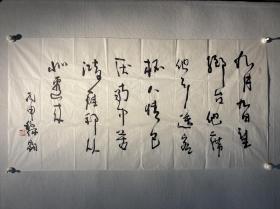 九月九日望
鄉台他席
他乡送客
杯人情已
厌南中苦
鸿雁那从
北地来
丙申